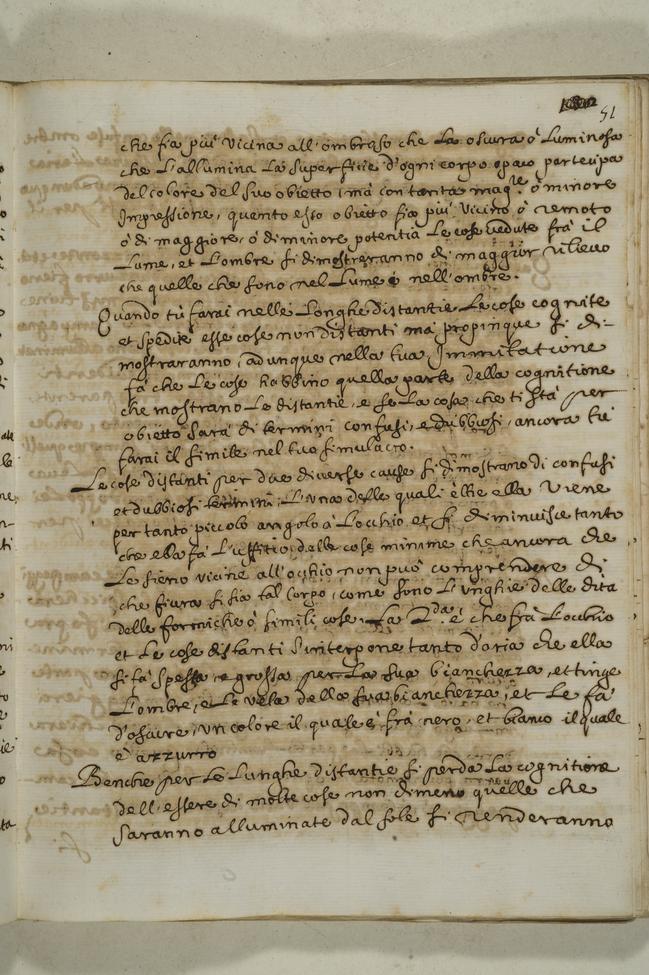 51
che sia piu' vicina all'ombroso che La oscura ò Luminosa
che L'allumina La superficie d'ogni corpo opaco partecipa
del colore del suo obietto, ma con tanta mag.re ò minore
Impressione, quanto esso obietto sia piu' vicino ò remoto
ò di maggiore, ò di minore potentia Le cose vedute frà il
Lume, et L'ombre si dimostreranno di maggior rilievo
che quelle che sono nel Lume ò nell'ombre.
Quando tù farai nelle Longhe distantie Le cose cognite
et spedite esse cose non distanti mà propinque si di-
mostraranno, adunque nella tua Immitatione
fà che Le cose habbino quella parte della cognitione
che mostrano Le distantie, e se La cosa che ti stà per
obietto sarà di termini confusi, e dubbiosi, ancora tù
farai il simile nel tuo simulacro.
Le cose distanti per due diverse cause si dimostrano di confusi
et dubbiosi termini, L'una delle quali è che ella viene
per tanto piccolo angolo à L'occhio et si diminuisce tanto
che ella fà L'uffitio delle cose minime che ancora che
Le sieno vicine all'occhio non può comprendere di
che fiura si sia tal Corpo, come sono L'unghie delle dita
delle formiche ò simili cose. La 2.da è che frà L'occhio
et Le cose distanti s'interpone tanto d'aria che ella
si fà spessa e grossa, per La sua bianchezza, et tinge
L'ombre, e Le vela della sua bianchezza, et Le fà
d'oscure, un colore il quale è frà nero, et bianco il quale
è azzurro
Benche per Le Lunghe distantie si perda La cognitione
dell'essere di molte cose non dimeno quelle che
saranno alluminate dal sole si renderanno